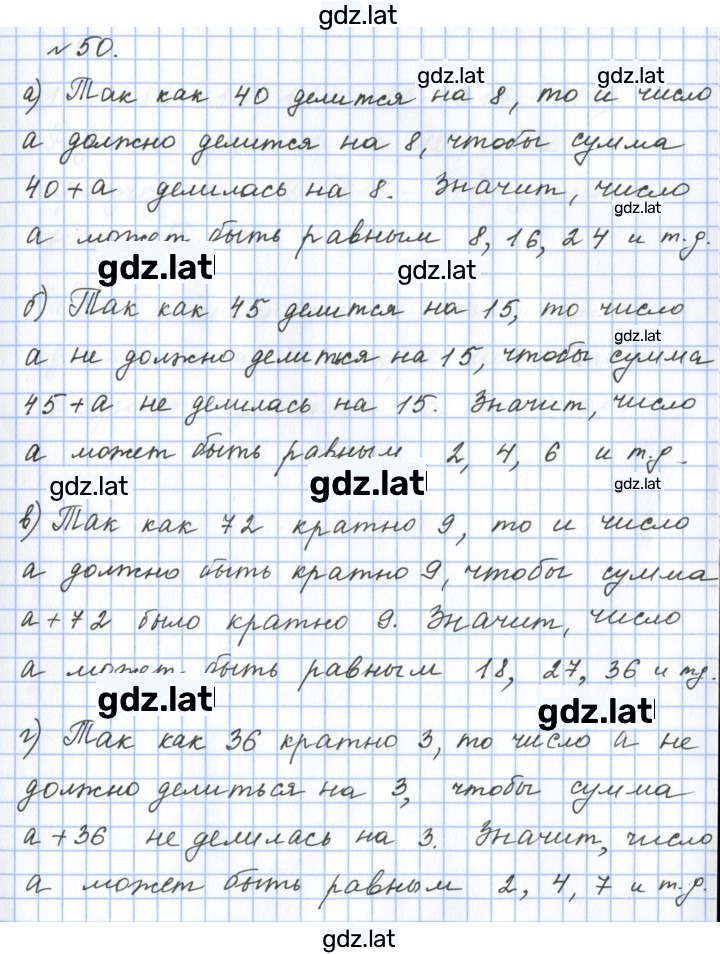 gdz.lat
№50.
gdz.lat gdz.lat
а) Так как 40 делится на 8, то и число
а должно делится на 8, чтобы сумма
40+а делилась на 8. Значит, число
gdz.lat
а может быть равным 8, 16, 24 и т.д.
gdz.lat gdz.lat
б) Так как 45 делится на 15, то число
gdz.lat
а не должно делиться на 15, чтобы сумма
45+а не делилась на 15. Значит, число
а может быть равным 2, 4, 6 и т.д.
gdz.lat gdz.lat gdz.lat
в) Так как 72 кратно 9, то и число
а должно быть кратно 9, чтобы сумма
а+72 было кратно 9. Значит, число
а может быть равным 18, 27, 36 и тд.
gdz.lat gdz.lat
г) Так как 36 кратно 3, то число а не
должно делиться на 3, чтобы сумма
а+36 не делилась на 3. Значит, число
а может быть равным 2, 4, 7 и т.д.
gdz.lat